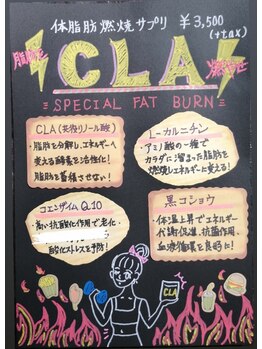 体脂肪燃焼サプリ ¥3,500
(+tax)
脂肪を
燃やせ
CLA
= SPECIAL FAT BURN =
CLA(共役リノール酸)
・脂肪を分解し、エネルギーへ
変える酵素を活性化!
脂肪を蓄積させない!
L-カルニチン
・アミノ酸の一種で
カラダに溜まった脂肪を
燃焼しエネルギーに変える!
コエンザイムQ10
・高い抗酸化作用で老化
酸化ストレスを予防!
黒コショウ
・体温上昇でエネルギー
代謝促進、抗菌作用、
血液循環を良好に!
CLA